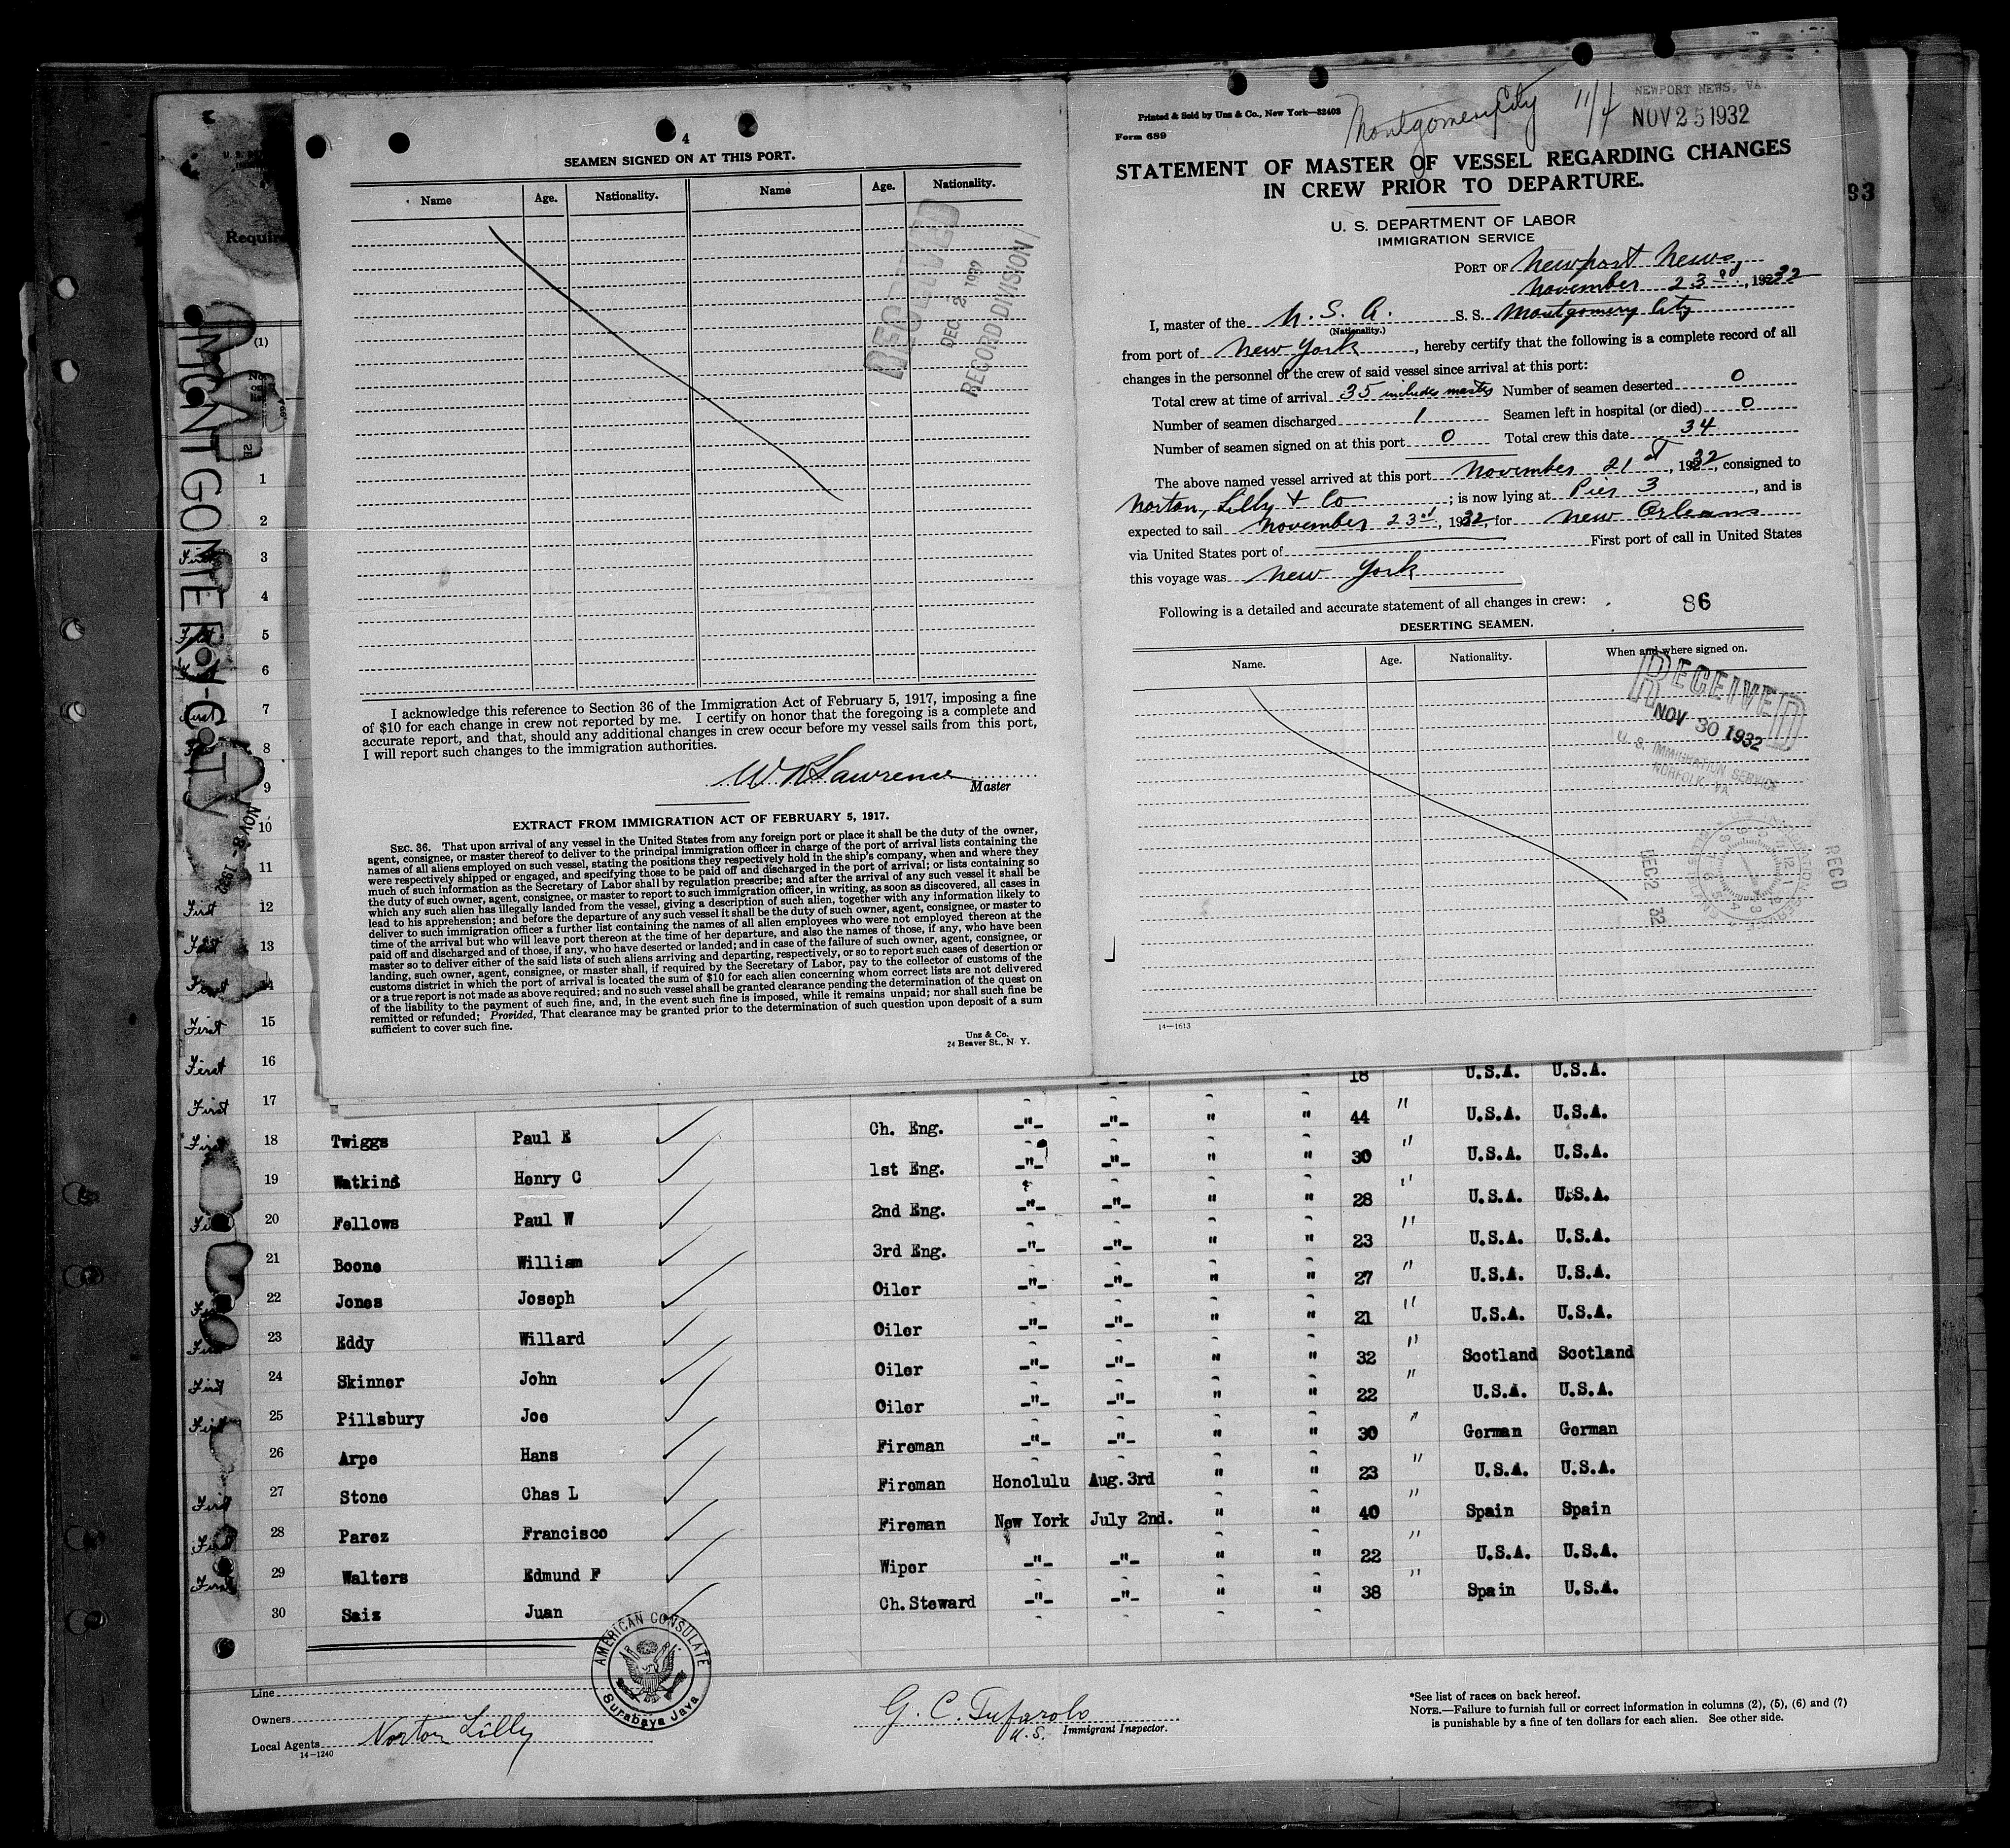 4
SEAMEN SIGNED ON AT THIS PORT.
Name Age. Nationality. Name Age. Nationality.
RECEIVED
DEC 2 1932
RECORD DIVISION
I acknowledge this reference to Section 36 of the Immigration Act of February 5, 1917, imposing a fine
of $10 for each change in crew not reported by me. I certify on honor that the foregoing is a complete and
accurate report, and that, should any additional changes in crew occur before my vessel sails from this port,
I will report such changes to the immigration authorities.
W R Lawrence
Master
EXTRACT FROM IMMIGRATION ACT OF FEBRUARY 5, 1917.
SEC. 36. That upon arrival of any vessel in the United States from any foreign port or place it shall be the duty of the owner,
agent, consignee, or master thereof to deliver to the principal immigration officer in charge of the port of arrival lists containing the
names of all aliens employed on such vessel, stating the positions they respectively hold in the ship's company, when and where they
were respectively shipped or engaged, and specifying those to be paid off and discharged in the port of arrival; or lists containing so
much of such information as the Secretary of Labor shall by regulation prescribe; and after the arrival of any such vessel it shall be
the duty of such owner, agent, consignee, or master to report to such immigration officer, in writing, as soon as discovered, all cases in
which any such alien has illegally landed from the vessel, giving a description of such alien, together with any information likely to
lead to his apprehension; and before the departure of any such vessel it shall be the duty of such owner, agent, consignee, or master to
deliver to such immigration officer a further list containing the names of all alien employees who were not employed thereon at the
time of the arrival but who will leave port thereon at the time of her departure, and also the names of those, if any, who have been
paid off and discharged and of those, if any, who have deserted or landed; and in case of the failure of such owner, agent, consignee, or
master so to deliver either of the said lists of such aliens arriving and departing, respectively, or so to report such cases of desertion or
landing, such owner, agent, consignee, or master shall, if required by the Secretary of Labor, pay to the collector of customs of the
customs district in which the port of arrival is located the sum of $10 for each alien concerning whom correct lists are not delivered
or a true report is not made as above required; and no such vessel shall be granted clearance pending the determination of the quest on
of the liability to the payment of such fine, and, in the event such fine is imposed, while it remains unpaid; nor shall such fine be
remitted or refunded; Provided, That clearance may be granted prior to the determination of such question upon deposit of a sum
sufficient to cover such fine.
Unz & Co.
24 Beaver St., N Y.
Printed & Sold by Unz & Co., New York—32403
Form 689
Montgomery City 11/4
NEWPORT NEWS, VA.
NOV 25 1932
STATEMENT OF MASTER OF VESSEL REGARDING CHANGES
IN CREW PRIOR TO DEPARTURE.
U. S. DEPARTMENT OF LABOR
IMMIGRATION SERVICE
PORT OF Newport News,
November 23rd, 1932
I, master of the U. S. A. S. S. Montgomery City
(Nationality.)
from port of New York, hereby certify that the following is a complete record of all
changes in the personnel of the crew of said vessel since arrival at this port:
Total crew at time of arrival 35 includes master Number of seamen deserted 0
Number of seamen discharged 1 Seamen left in hospital (or died) 0
Number of seamen signed on at this port 0 Total crew this date 34
The above named vessel arrived at this port November 21st, 1932, consigned to
Norton, Lilly & Co; is now lying at Pier 3, and is
expected to sail November 23rd, 1932, for New Orleans
via United States port of First port of call in United States
this voyage was New York
Following is a detailed and accurate statement of all changes in crew:
86
DESERTING SEAMEN.
Name. Age. Nationality. When and where signed on.
RECEIVED
NOV 30 1932
U. S. IMMIGRATION SERVICE
NORFOLK, VA
DEC 2 32
RECD
14—1613
93
Require
MONTGOMERY CITY
NOV 8 - 1932
(1)
No. on list
1
2
First 3
4
First 5
First 6
First 7
First 8
9
10
11
First 12
First 13
First 14
First 15
First 16 18 U.S.A. U.S.A.
First 17
First 18 Twiggs Paul E Ch. Eng. -"- -"- " " 44 " U.S.A. U.S.A.
19 Watkins Henry C 1st Eng. -"- -"- " " 30 " U.S.A. U.S.A.
First 20 Fellows Paul W 2nd Eng. -"- -"- " " 28 " U.S.A. U.S.A.
21 Boone William 3rd Eng. -"- -"- " " 23 " U.S.A. U.S.A.
First 22 Jones Joseph Oiler -"- -"- " " 27 " U.S.A. U.S.A.
First 23 Eddy Willard Oiler -"- -"- " " 21 " U.S.A. U.S.A.
First 24 Skinner John Oiler -"- -"- " " 32 " Scotland Scotland
First 25 Pillsbury Joe Oiler -"- -"- " " 22 " U.S.A. U.S.A.
26 Arpe Hans Fireman -"- -"- " " 30 " German German
First 27 Stone Chas L Fireman Honolulu Aug. 3rd " " 23 " U.S.A. U.S.A.
First 28 Parez Francisco Fireman New York July 2nd. " " 40 " Spain Spain
First 29 Walters Edmund F Wiper -"- -"- " " 22 " U.S.A. U.S.A.
30 Saiz Juan Ch. Steward -"- -"- " " 38 " Spain U.S.A.
AMERICAN CONSULATE
Surabaya Java
Line
Owners
Local Agents Norton Lilly
14—1240
G. C. Tufarolo
U.S. Immigrant Inspector.
*See list of races on back hereof.
NOTE.—Failure to furnish full or correct information in columns (2), (5), (6) and (7)
is punishable by a fine of ten dollars for each alien. See other side.